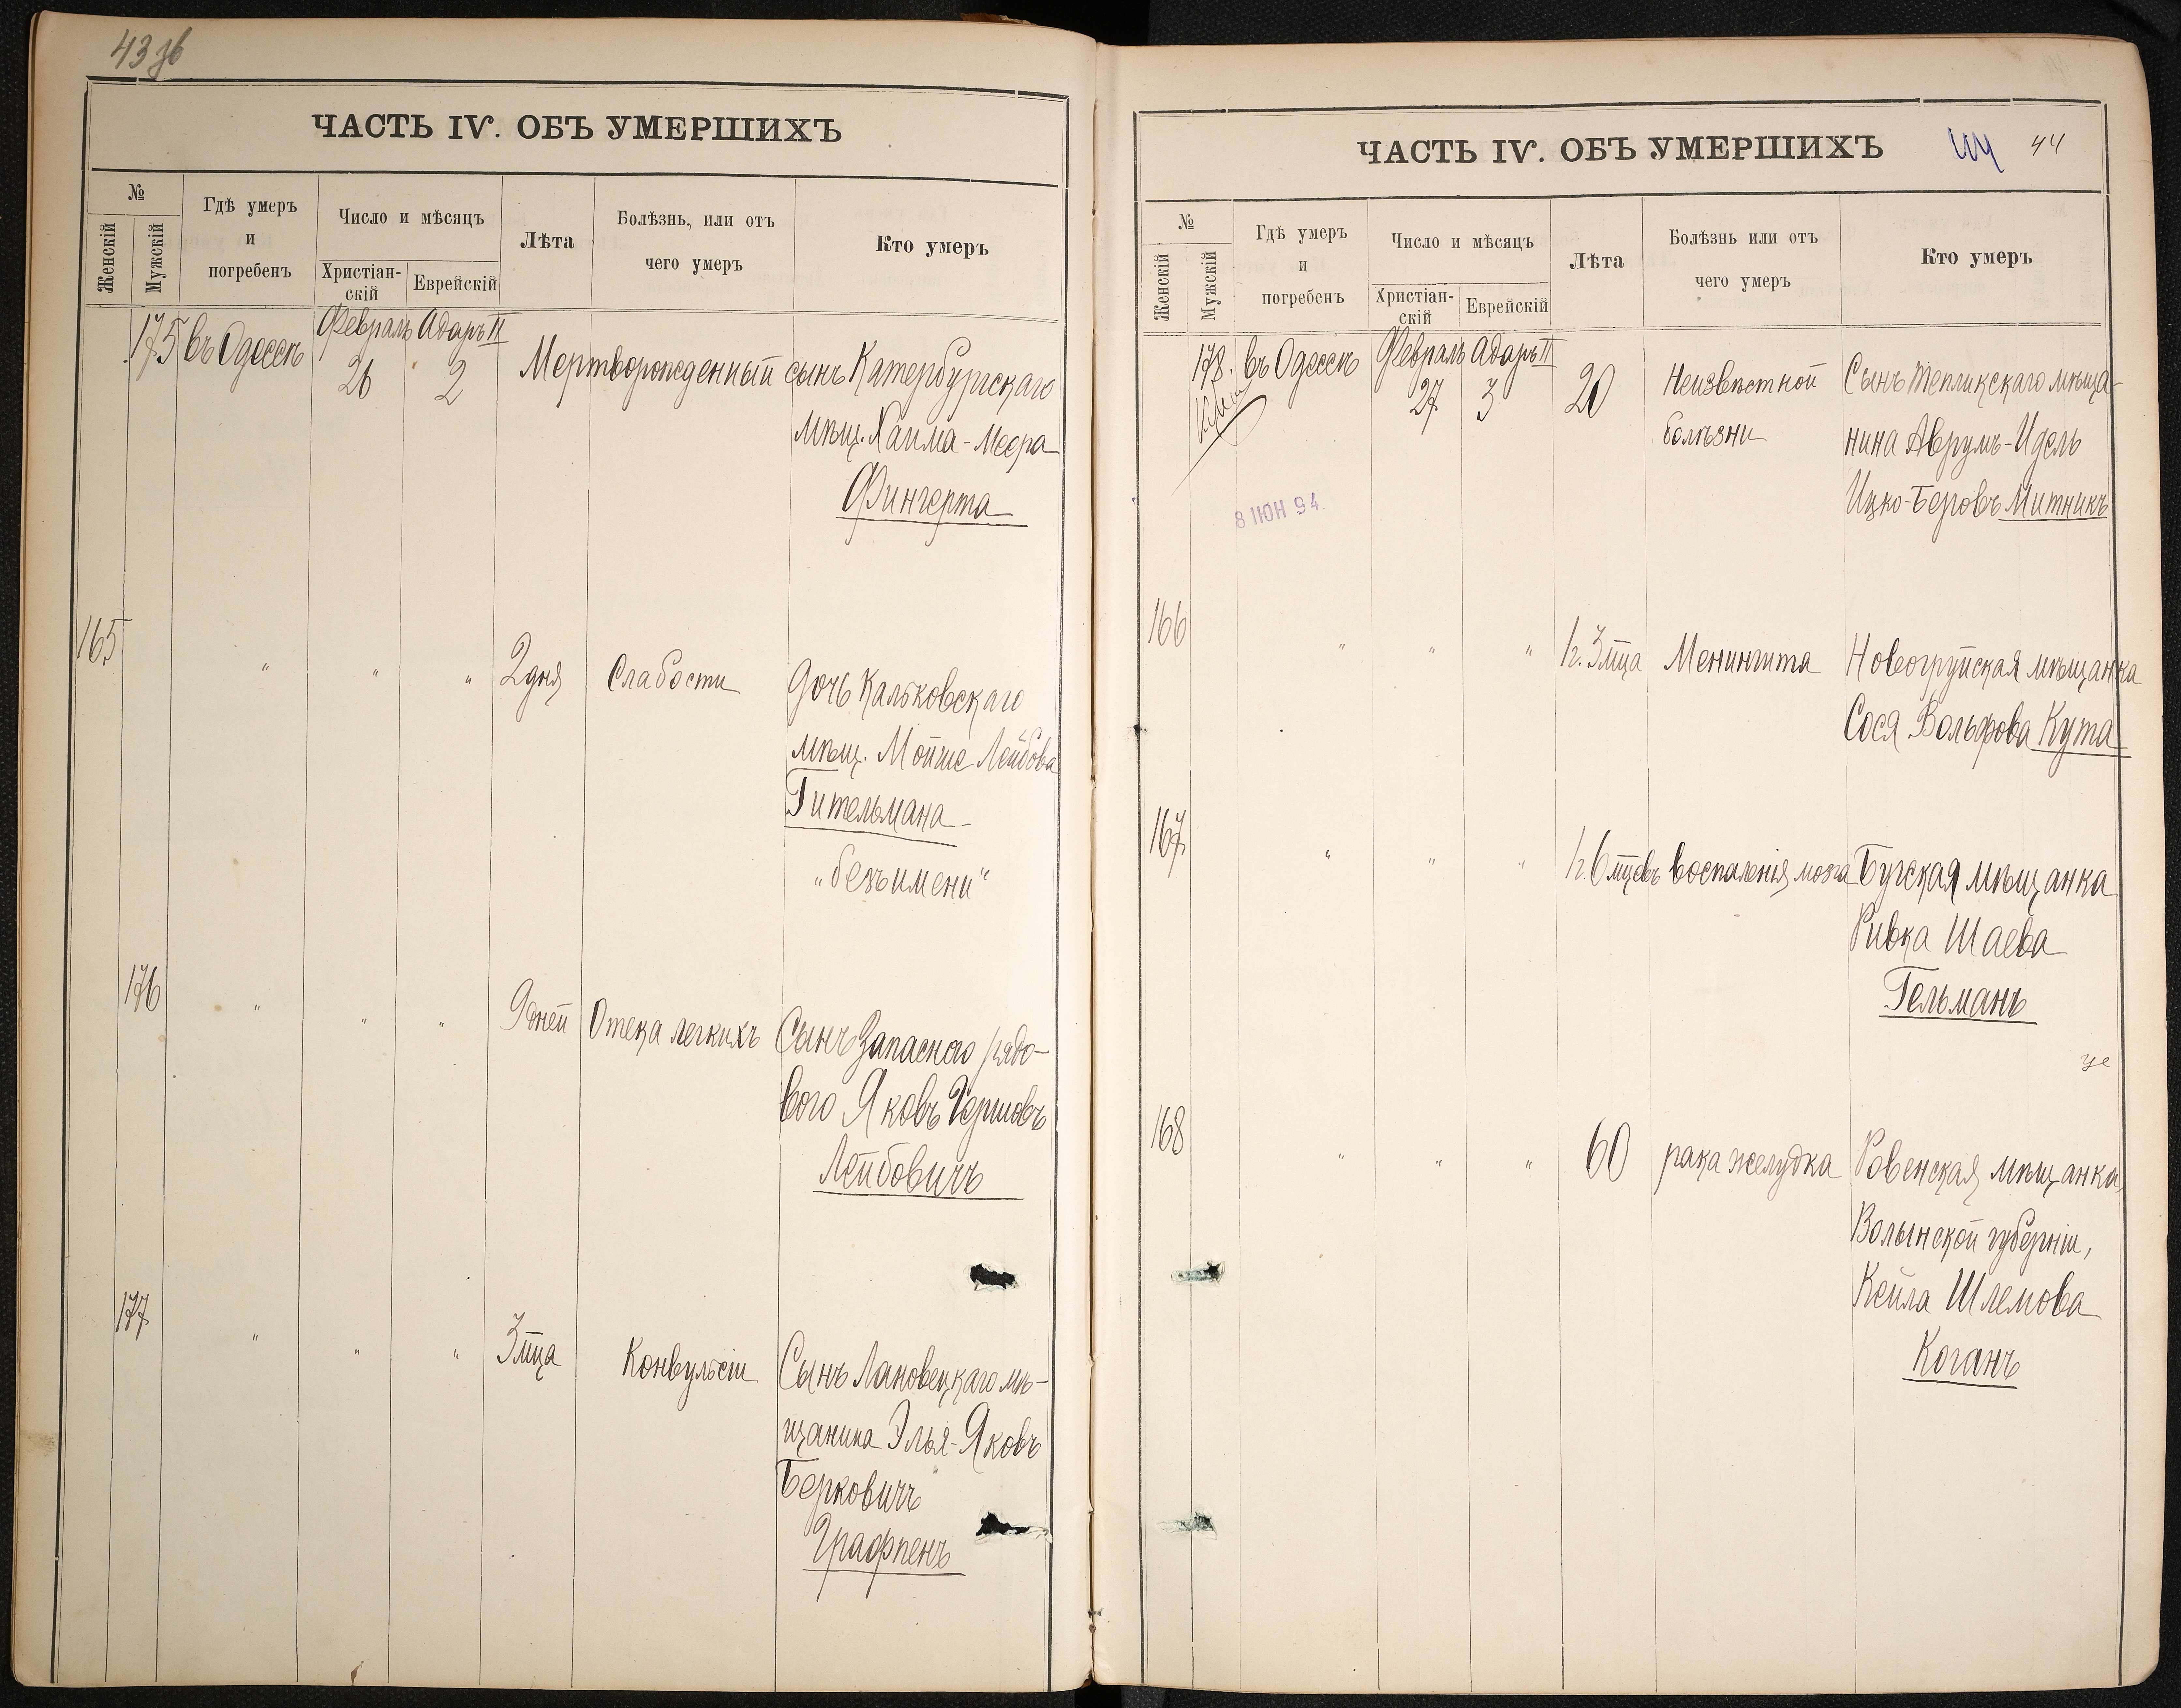 43 зв
ЧАСТЬ IV. ОБЪ УМЕРШИХЪ
№
Женскій
Мужскій
Гдѣ умеръ
и
погребенъ
Число и мѣсяцъ
Христіан-
скій
Еврейскій
Лѣта
Болѣзнь, или отъ
чего умеръ
Кто умеръ
175 въ Одессѣ Февраль Адаръ II
26 2 Мертворожденный сынъ Катербургскаго
мѣщ. Хаима-Меера
Фингерта
165 " " " 2 дня Слабости Дочь Кальковскаго
мѣщ. Мойше Лейбова
Гительмана
"безъимени"
176 " " " 9 дней Отека легкихъ Сынъ Запаснаго рядо-
вого Яковъ Гершовъ
Лейбовичъ
177 " " " 3 мца Конвульсіи Сынъ Лановецкаго мѣ-
щанина Элья-Яковъ
Берковичъ
Графпенъ
ЧАСТЬ IV. ОБЪ УМЕРШИХЪ 44
№
Женскій
Мужскій
Гдѣ умеръ
и
погребенъ
Число и мѣсяцъ
Христіан-
скій
Еврейскій
Лѣта
Болѣзнь или отъ
чего умеръ
Кто умеръ
178. въ Одессѣ Февраль Адаръ II
27 3 20 Неизвѣстной болѣзни Сынъ Тепликскаго мѣща-
нина Аврумъ-Идель
Ицко-Беровъ Митникъ
8 ІЮН 94.
166 " " " 1 г. 3 мца Менингита Новогруйская мѣщанка
Сося Вольфова Кута
167 " " " 1 г. 6 мцевъ воспаленія мозга Бугская мѣщанка
Ривка Шаева
Гельманъ
168 " " " 60 рака желудка Ровенская мѣщанка,
Волынской губерніи,
Кейла Шлемова
Коганъ